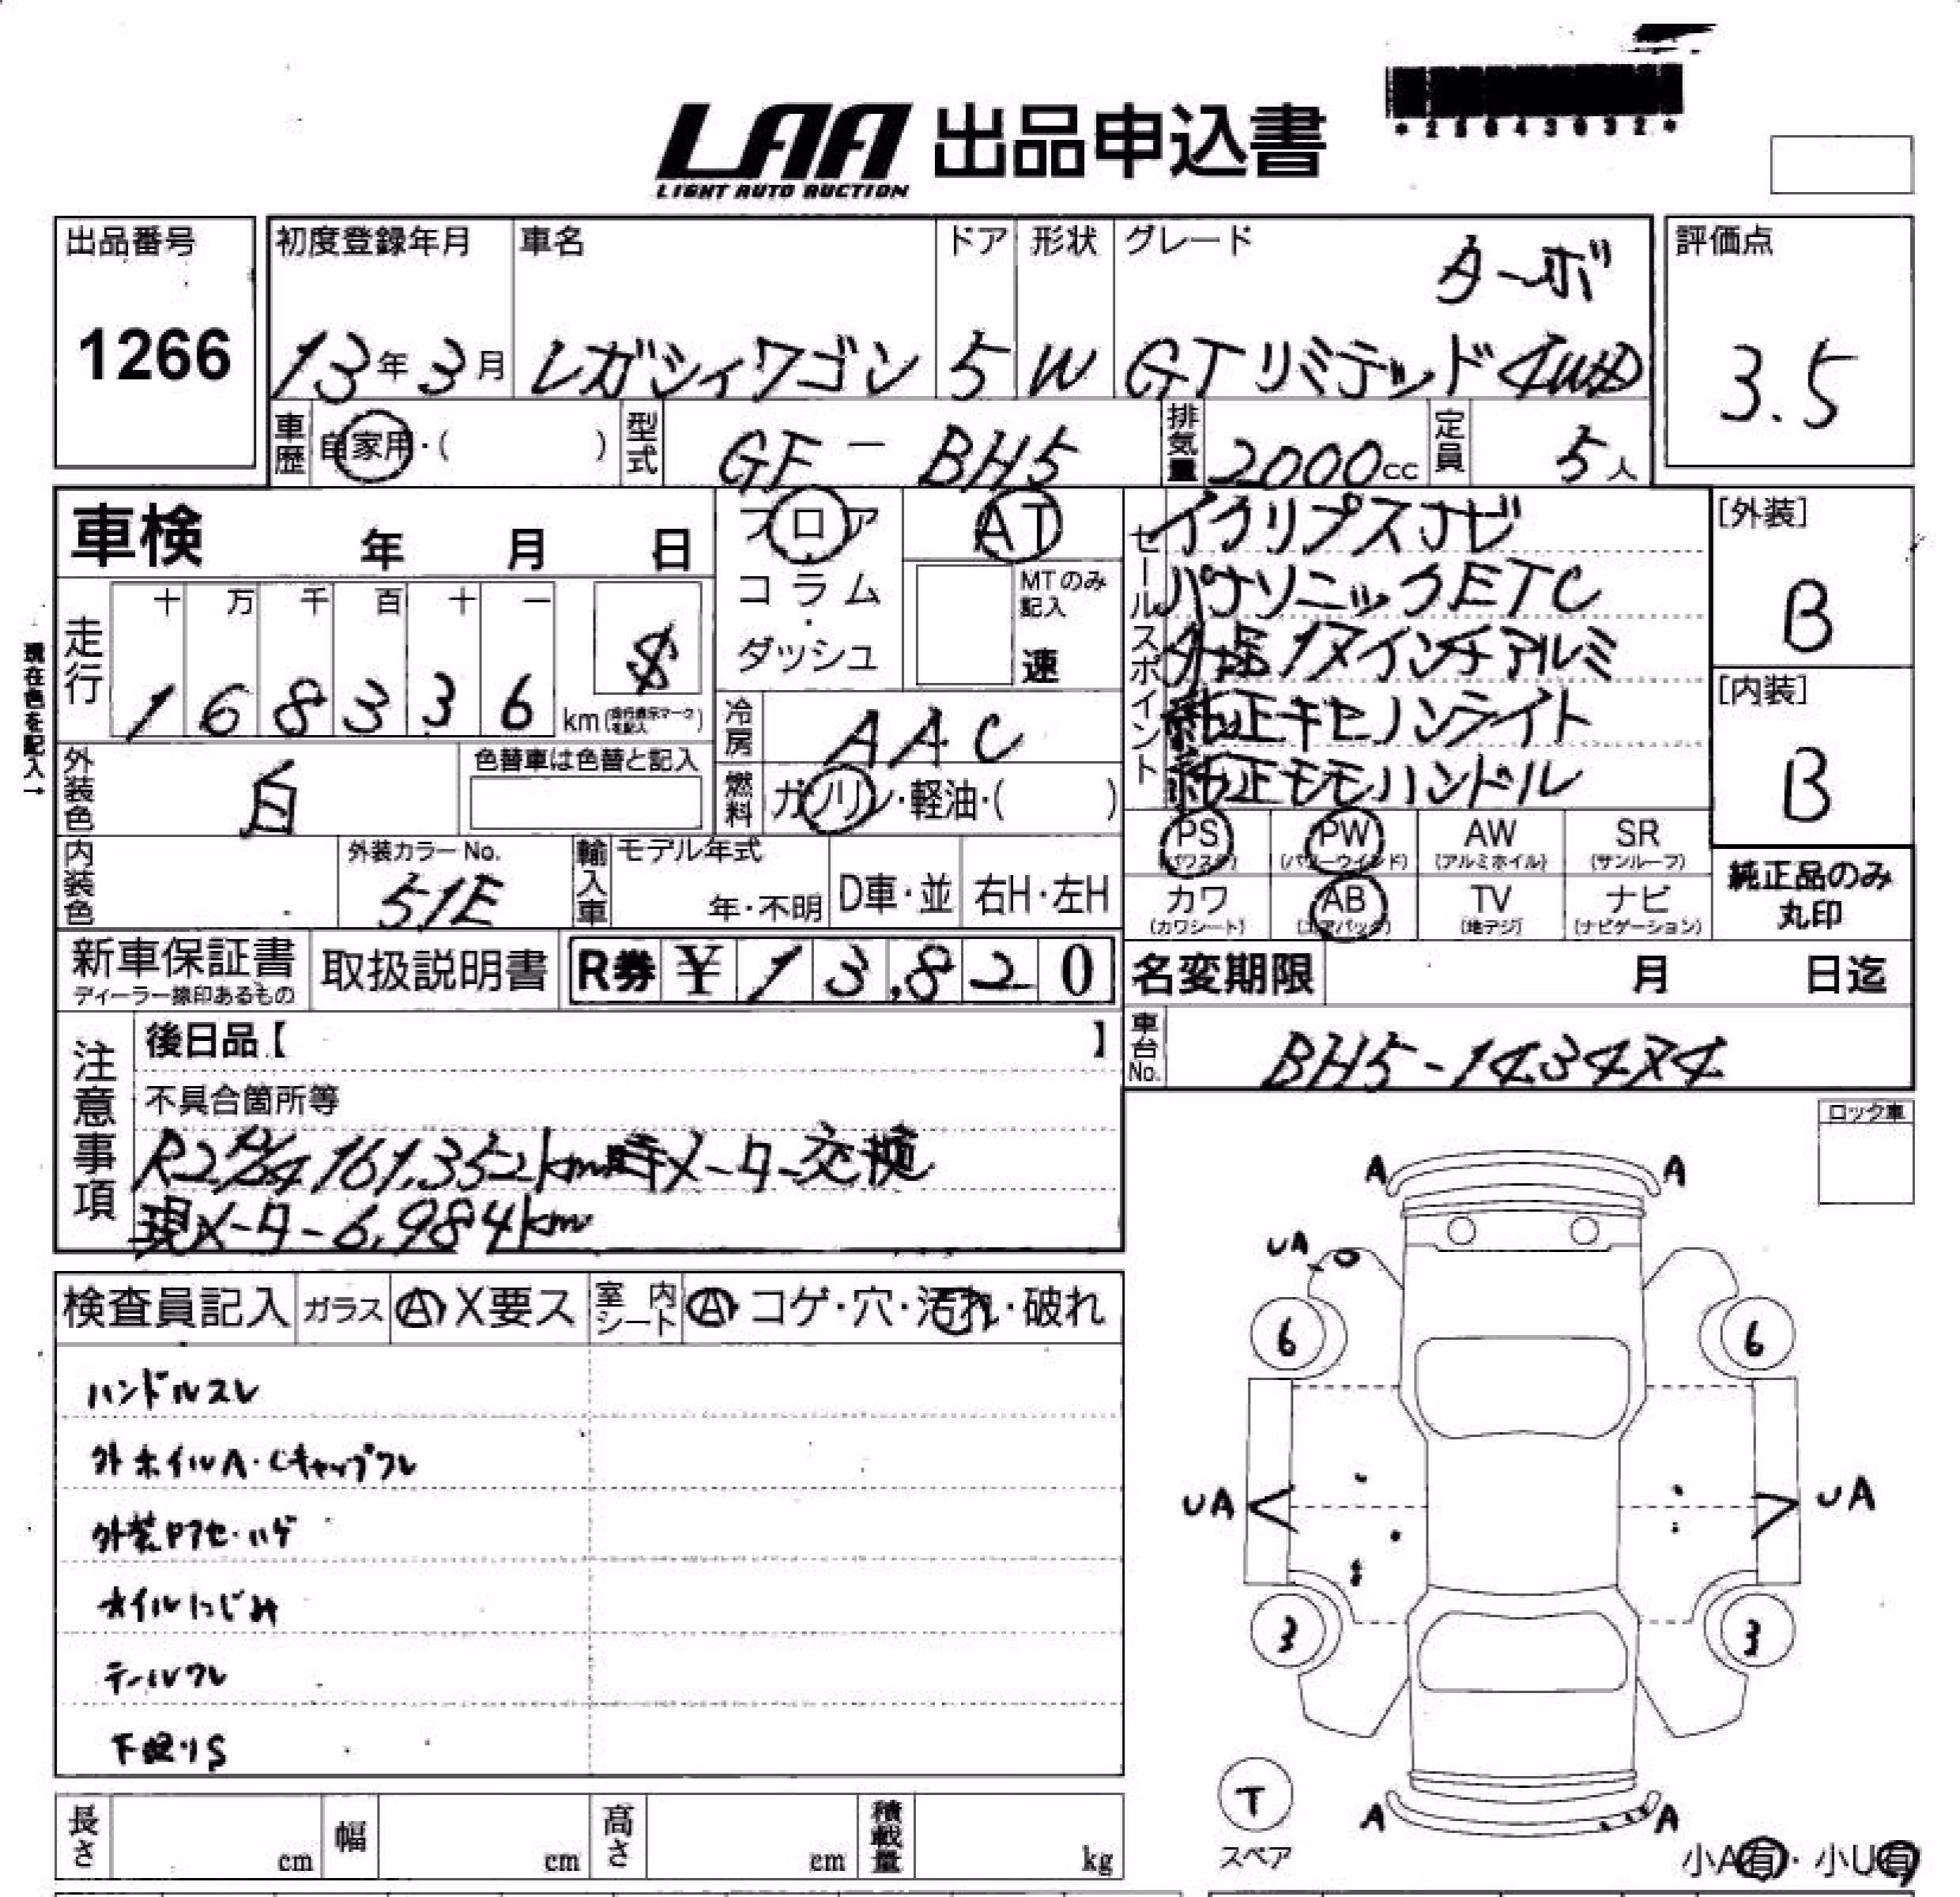 *25043032*
LAA 出品申込書
LIGHT AUTO AUCTION
出品番号 初度登録年月 車名 ドア 形状 グレード 評価点
ターボ
1266 13年3月 レガシィワゴン 5 W GTリミテッド4WD 3.5
車歴 自家用・( ) 型式 GF-BH5 排気量 2000cc 定員 5人
車検 年 月 日 フロア AT セールスポイント イクリプスナビ [外装]
コラム・ MTのみ記入 パナソニックETC B
ダッシュ 速 外品17インチアルミ
現在色を記入→
走行 十 万 千 百 十 一 $ 純正キセノンライト [内装]
1 6 8 3 3 6 km(走行表示マークを記入) 冷房 AAC 純正モモハンドル B
外装色 白 色替車は色替と記入 燃料 ガソリン・軽油・( )
PS(パワステ) PW(パワーウインド) AW(アルミホイル) SR(サンルーフ)
内装色 外装カラーNo. 51E 輸入車 モデル年式 年・不明 D車・並 右H・左H
カワ(カワシート) AB(エアバッグ) TV(地デジ) ナビ(ナビゲーション) 純正品のみ丸印
新車保証書 取扱説明書 R券 ¥ 13,820 名変期限 月 日迄
ディーラー捺印あるもの
注意事項 後日品【 】 車台No. BH5-143474
不具合箇所等 ロック車
161,352km時メーター交換
現メーター6,984km
検査員記入 ガラス A・X要ス 室内シート A・コゲ・穴・汚れ・破れ
ハンドルスレ
外ホイルA・Cキャップワレ
外装アセ・ハゲ
オイルにじみ
テールワレ
下廻りS
A A
UA
6 6
UA UA
3 3
T
スペア
A A
小A有・小U有
長さ cm 幅 cm 高さ cm 積載量 kg